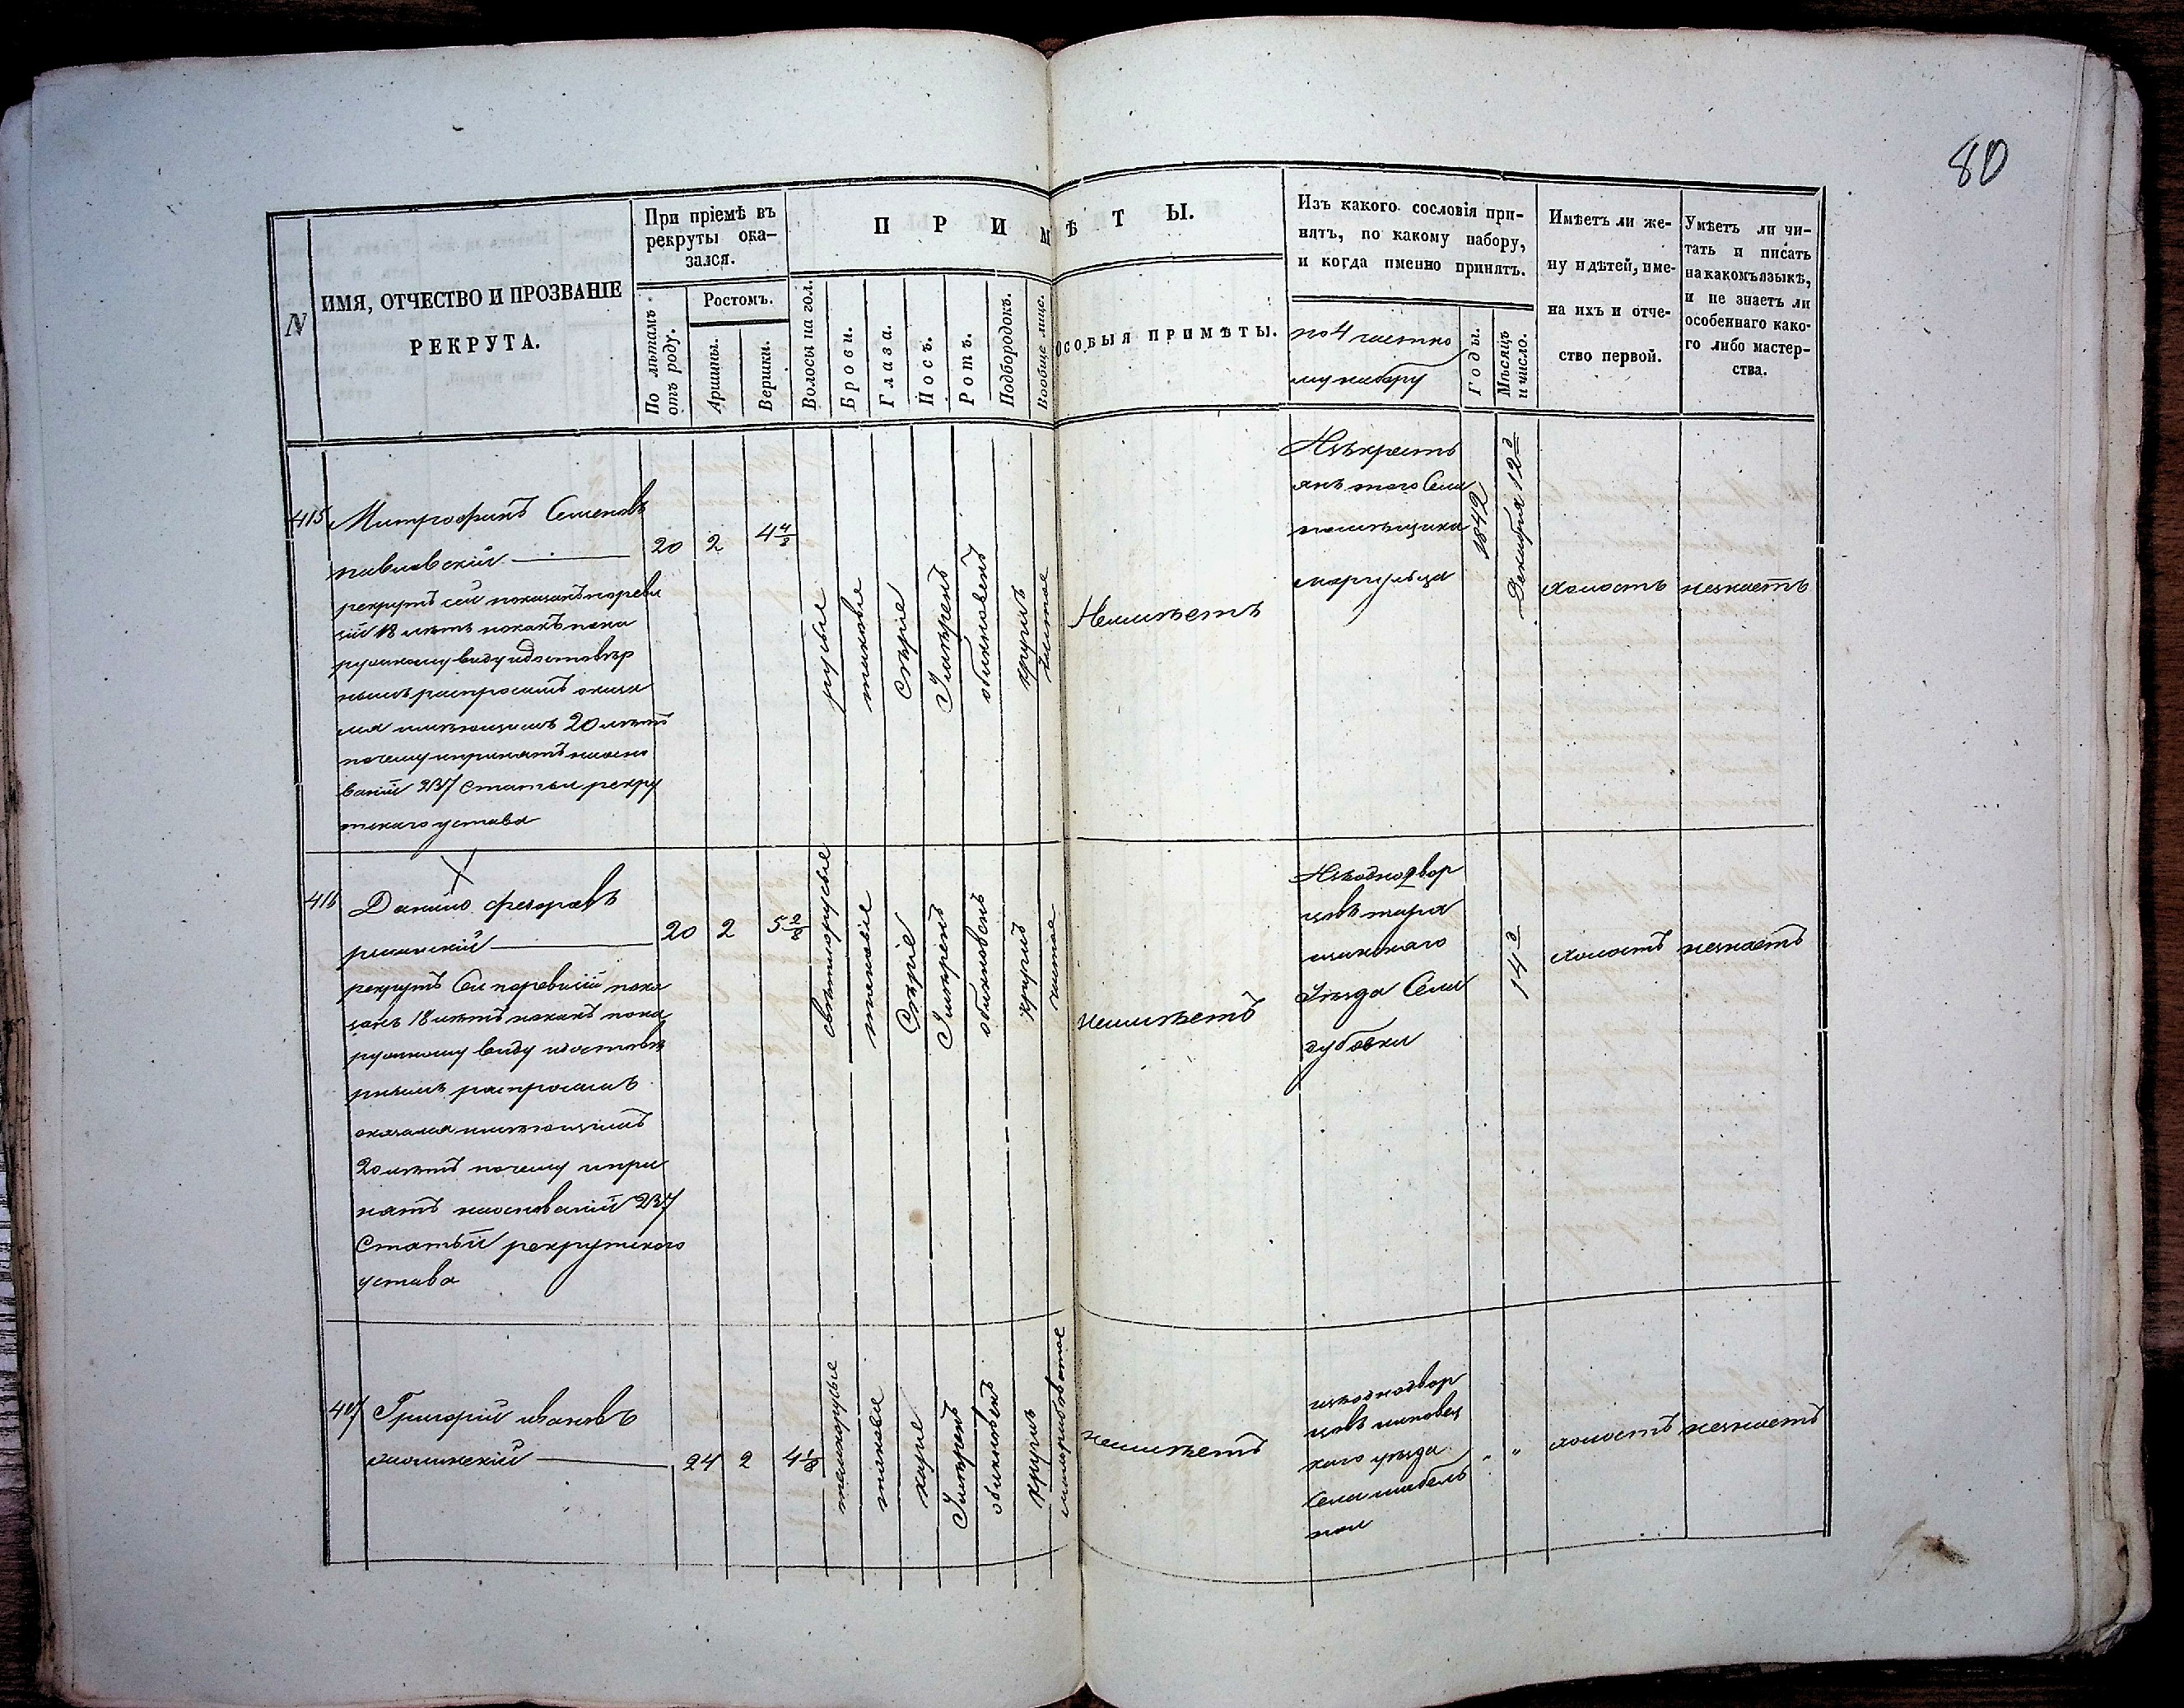 80
N
ИМЯ, ОТЧЕСТВО И ПРОЗВАНІЕ
РЕКРУТА.
При пріемѣ въ
рекруты ока-
зался.
По лѣтамъ
отъ роду.
Ростомъ.
Аршины.
Вершки.
ПРИМѢТЫ.
Волосы на гол.
Брови.
Глаза.
Носъ.
Ротъ.
Подбородокъ.
Вообще лице.
ОСОБЫЯ ПРИМѢТЫ.
Изъ какого сословія при-
нятъ, по какому набору,
и когда именно принятъ.
по 4 частно
му набору
Годы.
Мѣсяцъ
и число.
Имѣетъ ли же-
ну и дѣтей, име-
на ихъ и отче-
ство первой.
Умѣетъ ли чи-
тать и писать
на какомъ языкѣ,
и не знаетъ ли
особеннаго како-
го либо мастер-
ства.
415
Митрофанъ Семеновъ
павловскій
рекрутъ сей показанъ по реви
зіи 18 лѣтъ но какъ пона
ружному виду и достовѣр
нымъ распросамъ оказа
лся имѣющимъ 20 лѣтъ
почему и принятъ наосно
ваніи 237 Статьи рекру
тскаго устава
20
2
4 4/8
русые
таковые
Сѣріе
Умѣренъ
обикновенъ
круглъ
чистое
Неимѣетъ
Изъ крестъ
янъ того Села
помѣщика
1842
Декабря 12 д
холостъ
незнаетъ
416
Данило федоровъ
рекрутъ Сей поревизіи пока
занъ 18 лѣтъ но какъ пона
ружному виду и достовѣ
рнымъ распросамъ
оказался имѣющимъ
20 лѣтъ почему и при
нятъ наоснованіи 237
Статьи рекрутского
устава
20
2
5 2/8
свѣтлорусые
таковіе
Сѣріе
Умѣренъ
обикновенъ
круглъ
чистое
неимѣетъ
Изъ однодвор
цовъ тара
щанскаго
Уѣзда Села
дубовки
14 д
холостъ
незнаетъ
417
Григорій ивановъ
24
2
4 1/8
темнорусые
таковые
каріе
Умѣренъ
обикновенъ
круглъ
малорябоватое
неимѣетъ
изъ однодвор
цовъ липовец
каго уѣзда
Села
"
"
холостъ
незнаетъ